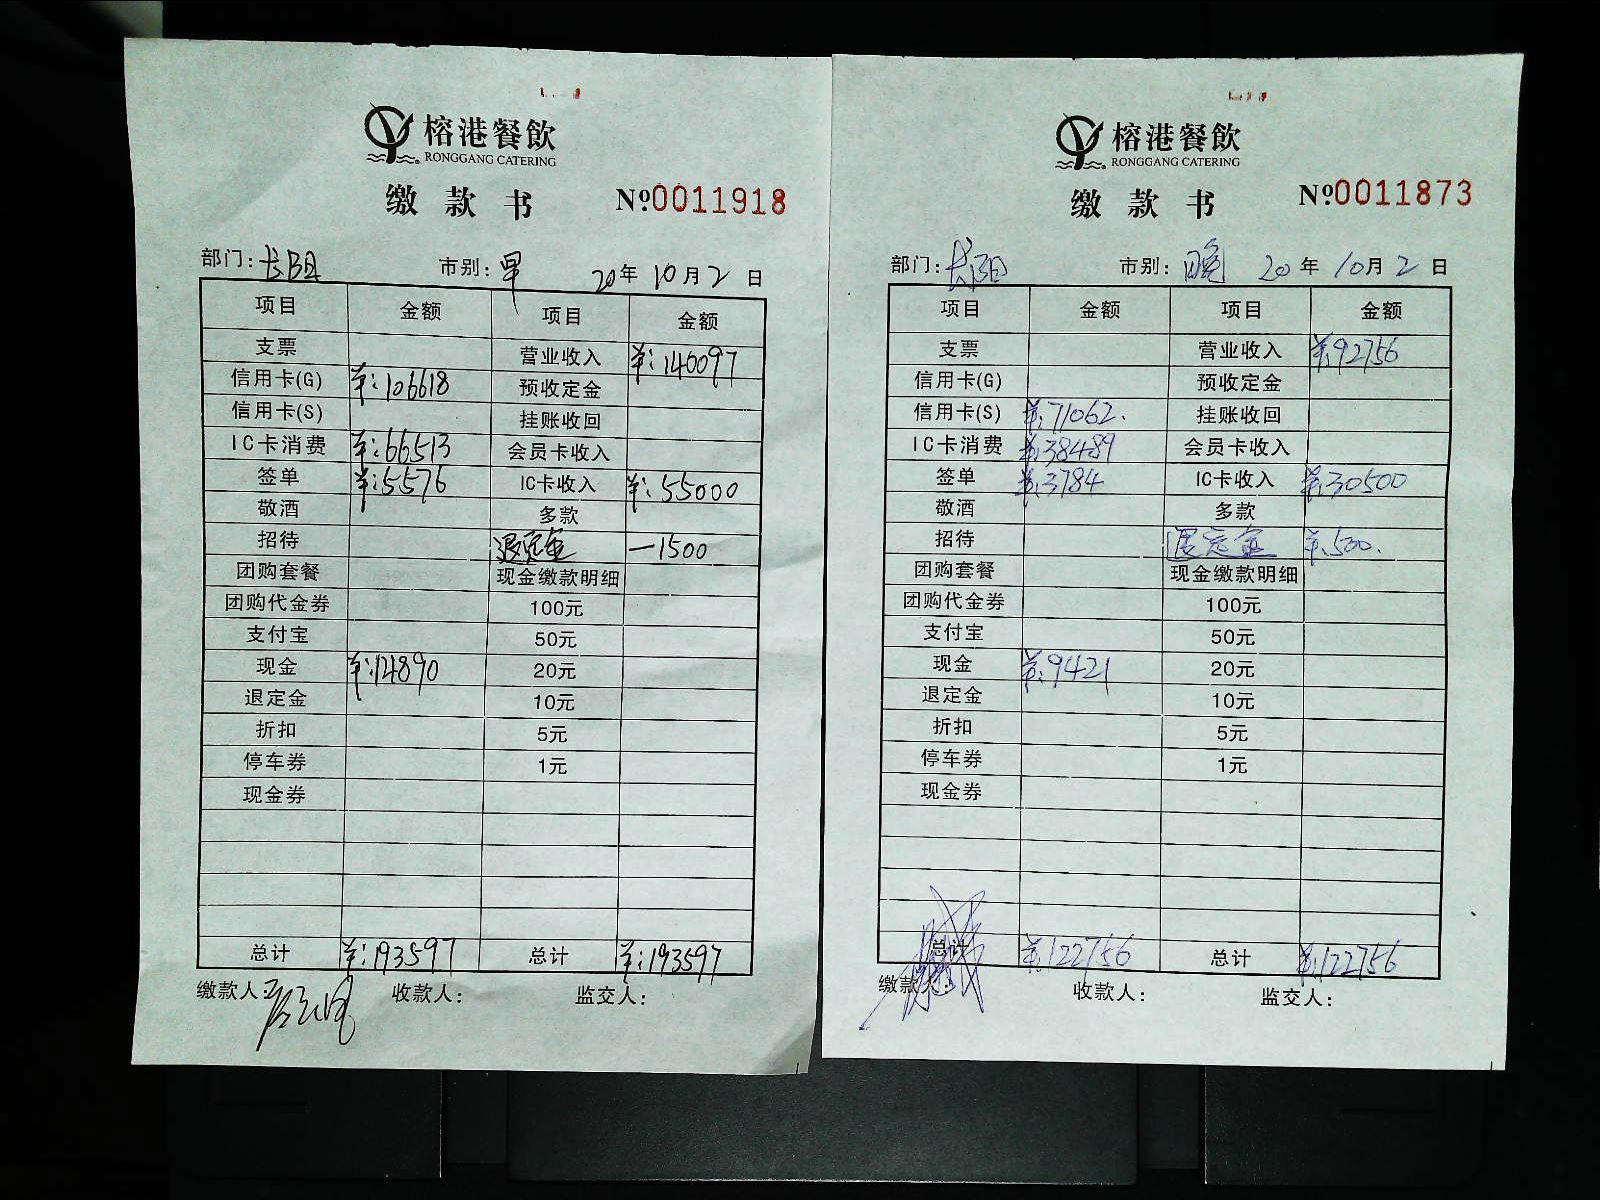 榕港餐飲
RONGGANG CATERING
缴款书 №0011918
部门:长阳 市别:早 20年10月2日
项目 金额 项目 金额
支票 营业收入 ¥:140097
信用卡(G) ¥:106618 预收定金
信用卡(S) 挂账收回
IC卡消费 ¥:66513 会员卡收入
签单 ¥:5576 IC卡收入 ¥:55000
敬酒 多款
招待 退定金 -1500
团购套餐 现金缴款明细
团购代金券 100元
支付宝 50元
现金 ¥:14890 20元
退定金 10元
折扣 5元
停车券 1元
现金券
总计 ¥:193597 总计 ¥:193597
缴款人: 收款人: 监交人:
榕港餐飲
RONGGANG CATERING
缴款书 №0011873
部门:长阳 市别:晚 20年10月2日
项目 金额 项目 金额
支票 营业收入 ¥:92756
信用卡(G) 预收定金
信用卡(S) ¥:71062. 挂账收回
IC卡消费 ¥:38489 会员卡收入
签单 ¥:3784 IC卡收入 ¥:30500
敬酒 多款
招待 退定金 ¥:500.
团购套餐 现金缴款明细
团购代金券 100元
支付宝 50元
现金 ¥:9421 20元
退定金 10元
折扣 5元
停车券 1元
现金券
总计 ¥:122756 总计 ¥:122756
缴款人: 收款人: 监交人: